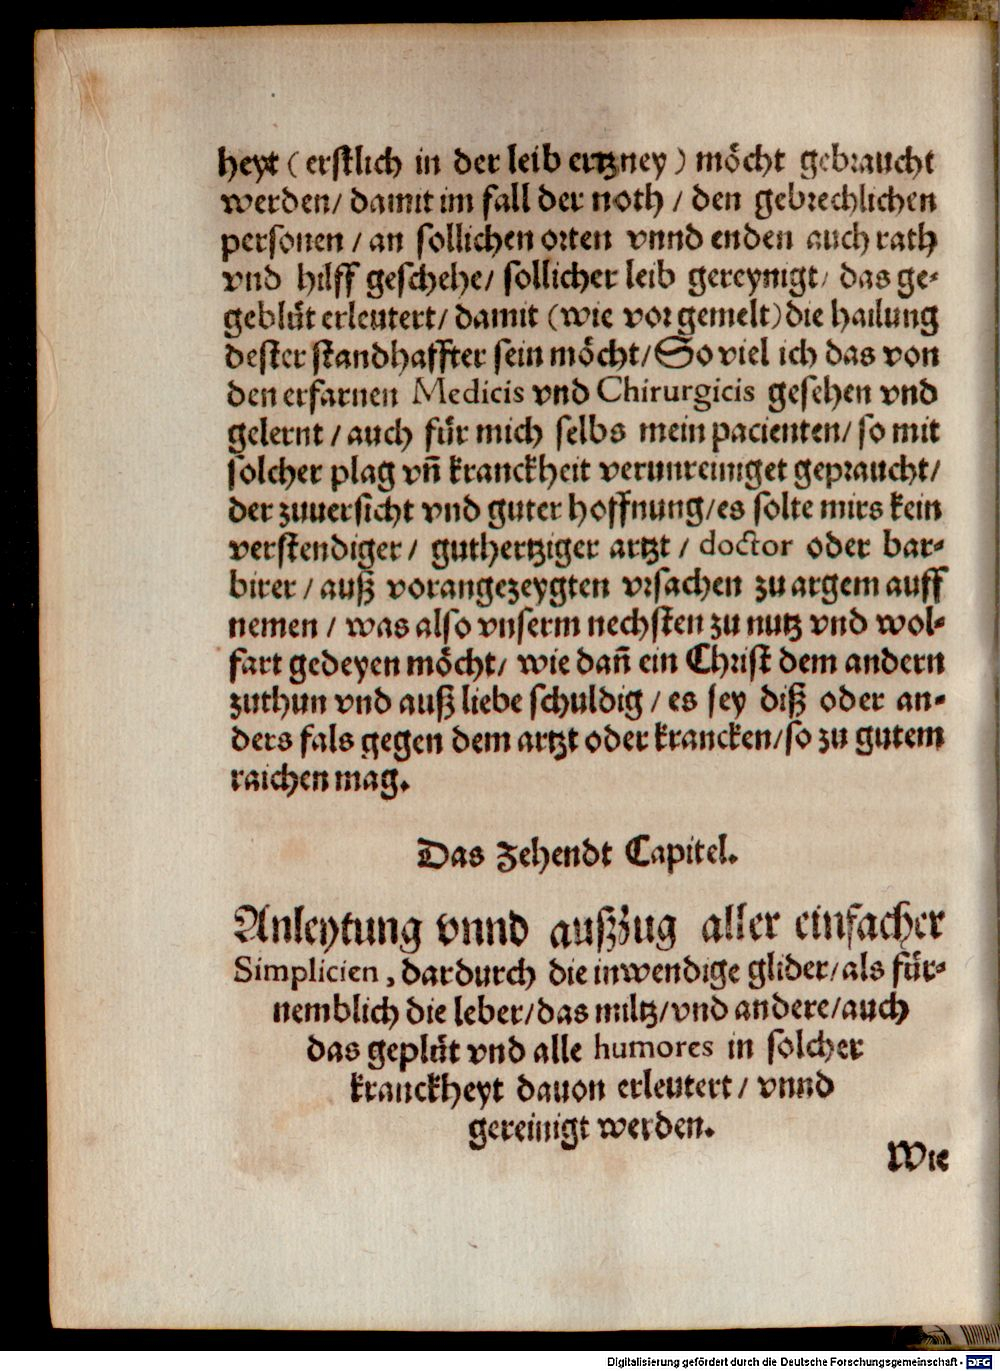 heyt ( erstlich in der leib ertzney ) möcht gebraucht
werden/ damit im fall der noth / den gebrechlichen
personen / an sollichen orten vnnd enden auch rath
vnd hilff geschehe/ sollicher leib gereynigt/ das ge-
geblüt erleutert/ damit (wie vor gemelt) die hailung
dester standhaffter sein möcht/ So viel ich das von
den erfarnen Medicis vnd Chirurgicis gesehen vnd
gelernt / auch für mich selbs mein pacienten/ so mit
solcher plag vñ kranckheit verunreiniget gepraucht/
der zuuersicht vnd guter hoffnung/es solte mirs kein
verstendiger / guthertziger artzt / doctor oder bar-
birer / auß vorangezeygten vrsachen zu argem auff
nemen / was also vnserm nechsten zu nutz vnd wol-
fart gedeyen möcht/ wie dañ ein Christ dem andern
zuthun vnd auß liebe schuldig / es sey diß oder an-
ders fals gegen dem artzt oder krancken/so zu gutem
raichen mag.
Das Zehendt Capitel.
Anleytung vnnd außzug aller einfacher
Simplicien, dardurch die inwendige glider/als für-
nemblich die leber/das miltz/vnd andere/auch
das geplüt vnd alle humores in solcher
kranckheyt dauon erleutert/ vnnd
gereinigt werden.
Wie
Digitalisierung gefördert durch die Deutsche Forschungsgemeinschaft - DFG